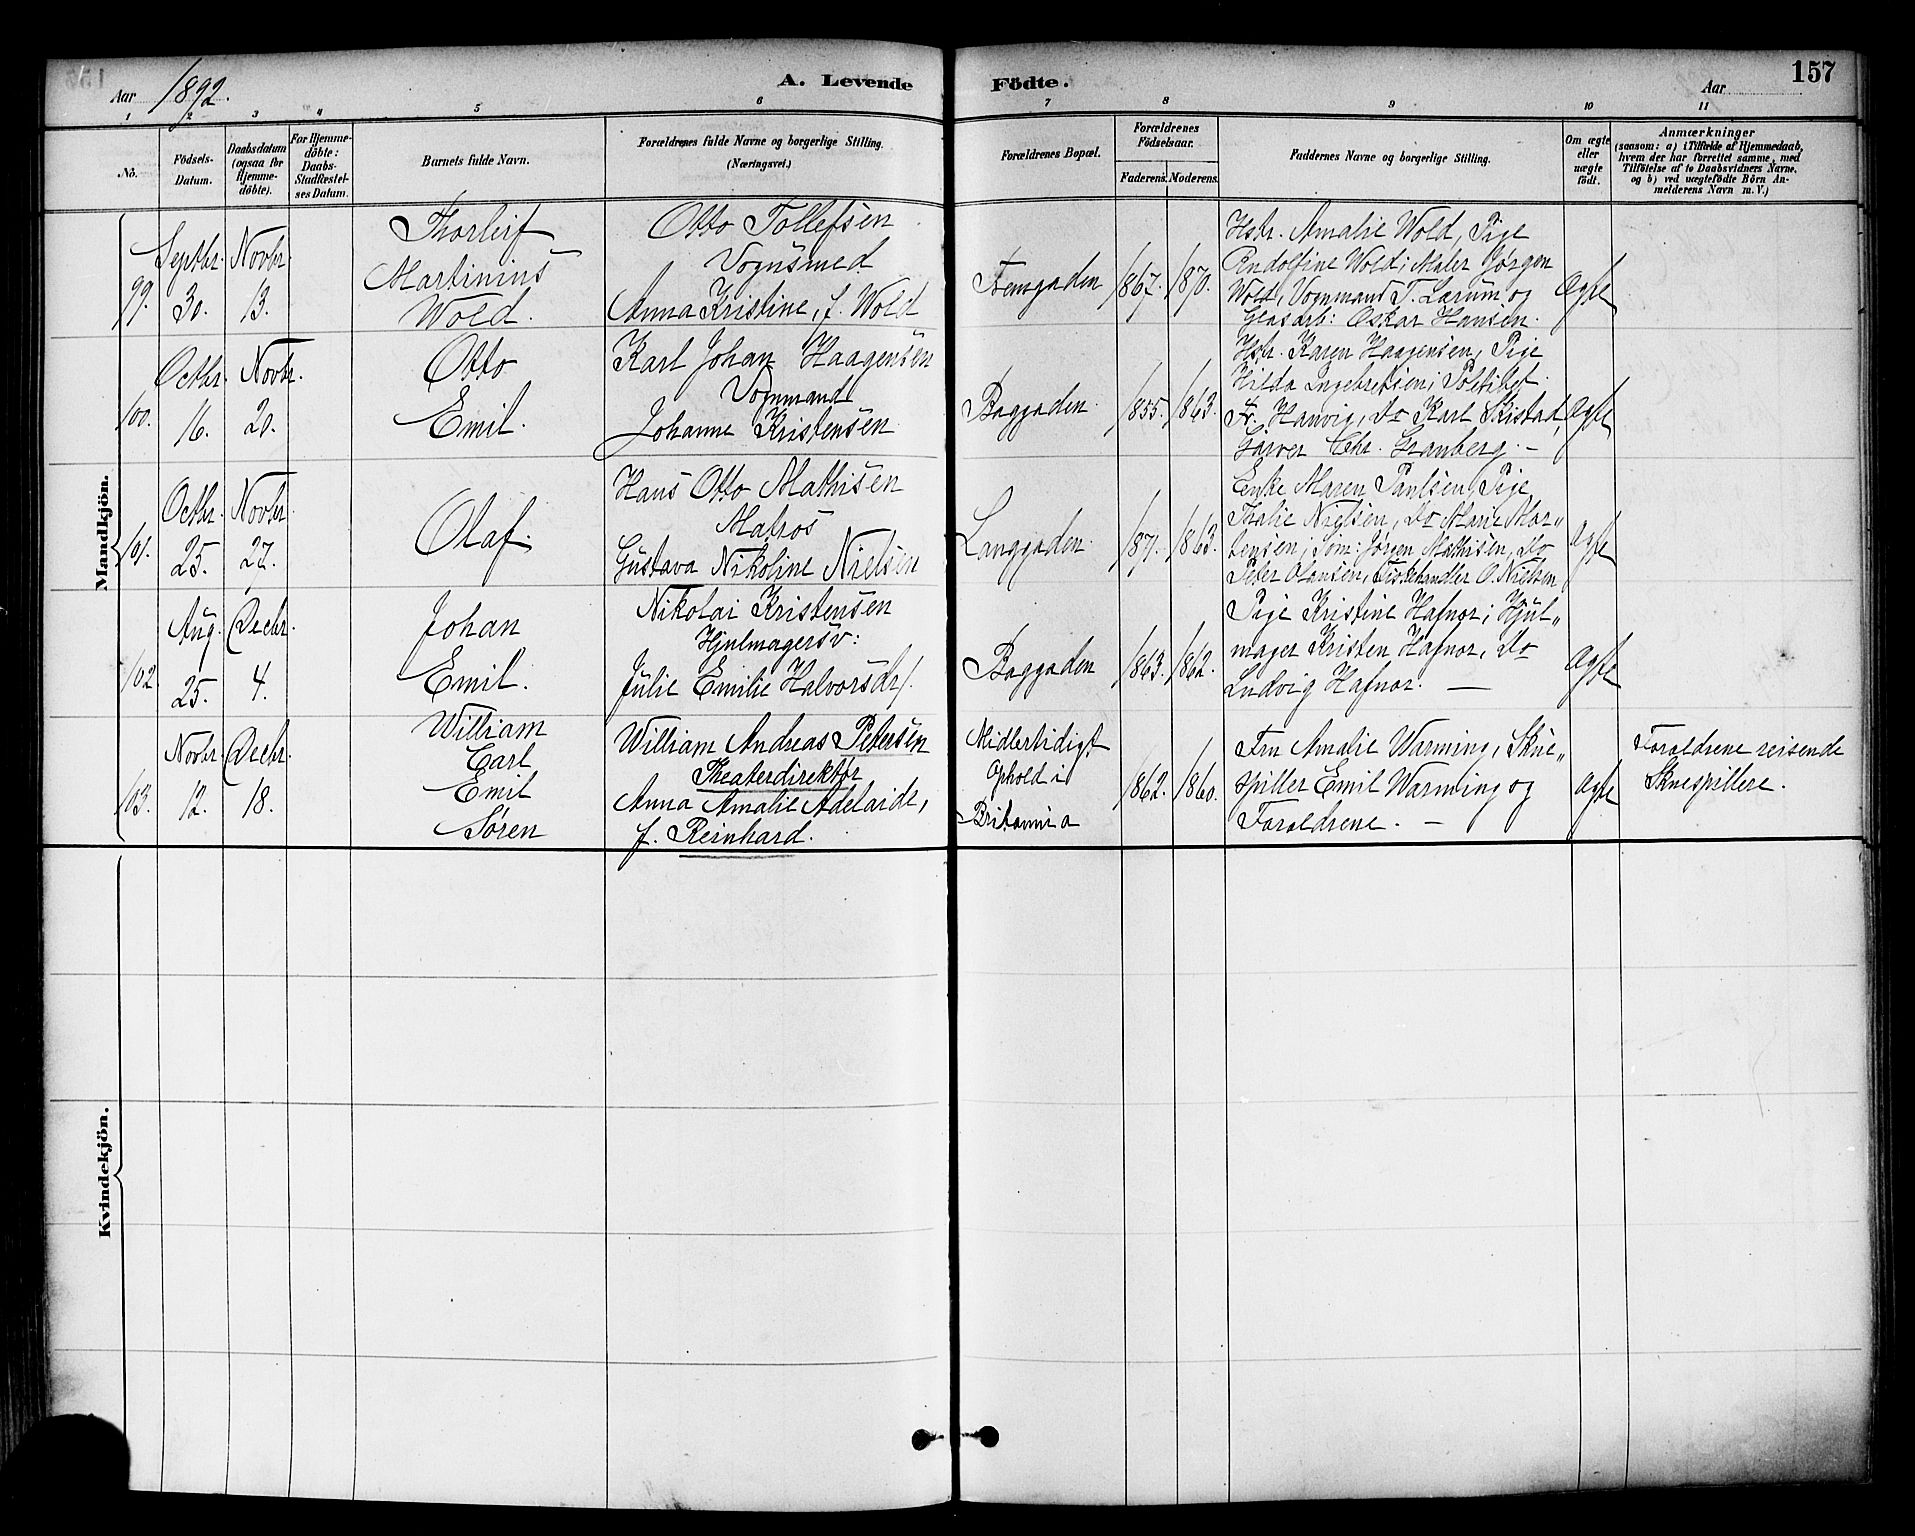 Aar 1892.
A. Levende Födte.
Aar
157
1 2 3 4 5 6 7 8 9 10 11
No.
Födsels-
Datum.
Daabsdatum
(ogsaa for
Hjemme-
döbte).
For Hjemme-
döbte:
Daabs-
Stadfæstel-
ses Datum.
Barnets fulde Navn.
Forældrenes fulde Navne og borgerlige Stilling.
(Næringsvei.)
Forældrenes Bopæl.
Forældrenes
Födselsaar.
Faderens. Moderens.
Faddernes Navne og borgerlige Stilling.
Om ægte
eller
uægte
födt.
Anmærkninger
(saasom: a) i Tilfælde af Hjemmedaab,
hvem der har forrettet samme, med
Tilföielse af to Daabsvidners Navne,
og b) ved uægtefödte Börn An-
melderens Navn m. V.)
Mandkjön.
99.
Septbr.
30.
Novbr.
13.
Thorleif
Martinius
Wold.
Otto Tollefsen
Vognsmed
Anna Kristine, f. Wold
1867. 1870.
Hstr. Amalie Wold, Pige
Rudolfine Wold; Maler Jørgen
Wold, Vognmand T. Lærum og
Glasarb: Oskar Hansen.
Ægte
100.
Octbr.
16.
Novbr.
20.
Otto
Emil.
Karl Johan Haagensen
Vognmand
Johanne Kristensen
Baggaden.
1855. 1863.
Hstr. Karen Haagensen, Pige
Hilda Ingebretsen; Politibet.
Fr. Hanvig, Do Karl Skistad,
Garver Chr. Granberg. –
Ægte
101.
Octbr.
25.
Novbr.
27.
Olaf.
Hans Otto Mathisen
Matros
Gustava Nikoline Nielsen
Langgaden.
1871. 1863.
Enke Maren Paulsen, Pige
Thalie Nielsen, Do Marie Mor„
tensen; Søm: Jørgen Mathisen, Do
Peter Olausen, Fiskehandler O. Nielsen
Ægte
102.
Aug.
25.
Decbr.
4.
Johan
Emil.
Nikolai Kristensen
Hjulmagersv:
Julie Emilie Halvorsdr.
Baggaden
1863. 1862.
Pige Kristine Hafnor; Hjul„
mager Kristen Hafnor, Do
Ludvig Hafnor. —
Ægte
103.
Novbr.
12.
Decbr.
18.
William
Carl
Emil
Søren
William Andreas Petersen
Theaterdirektør
Anna Amalie Adelaide,
f. Reinhard.
Midlertidigt
Ophold i
Britannia
1862. 1860.
Fru Amalie Warming, Skue„
spiller Emil Warming og
Forældrene. –
Ægte
Forældrene reisende
Skuespillere.
Kvindekjön.